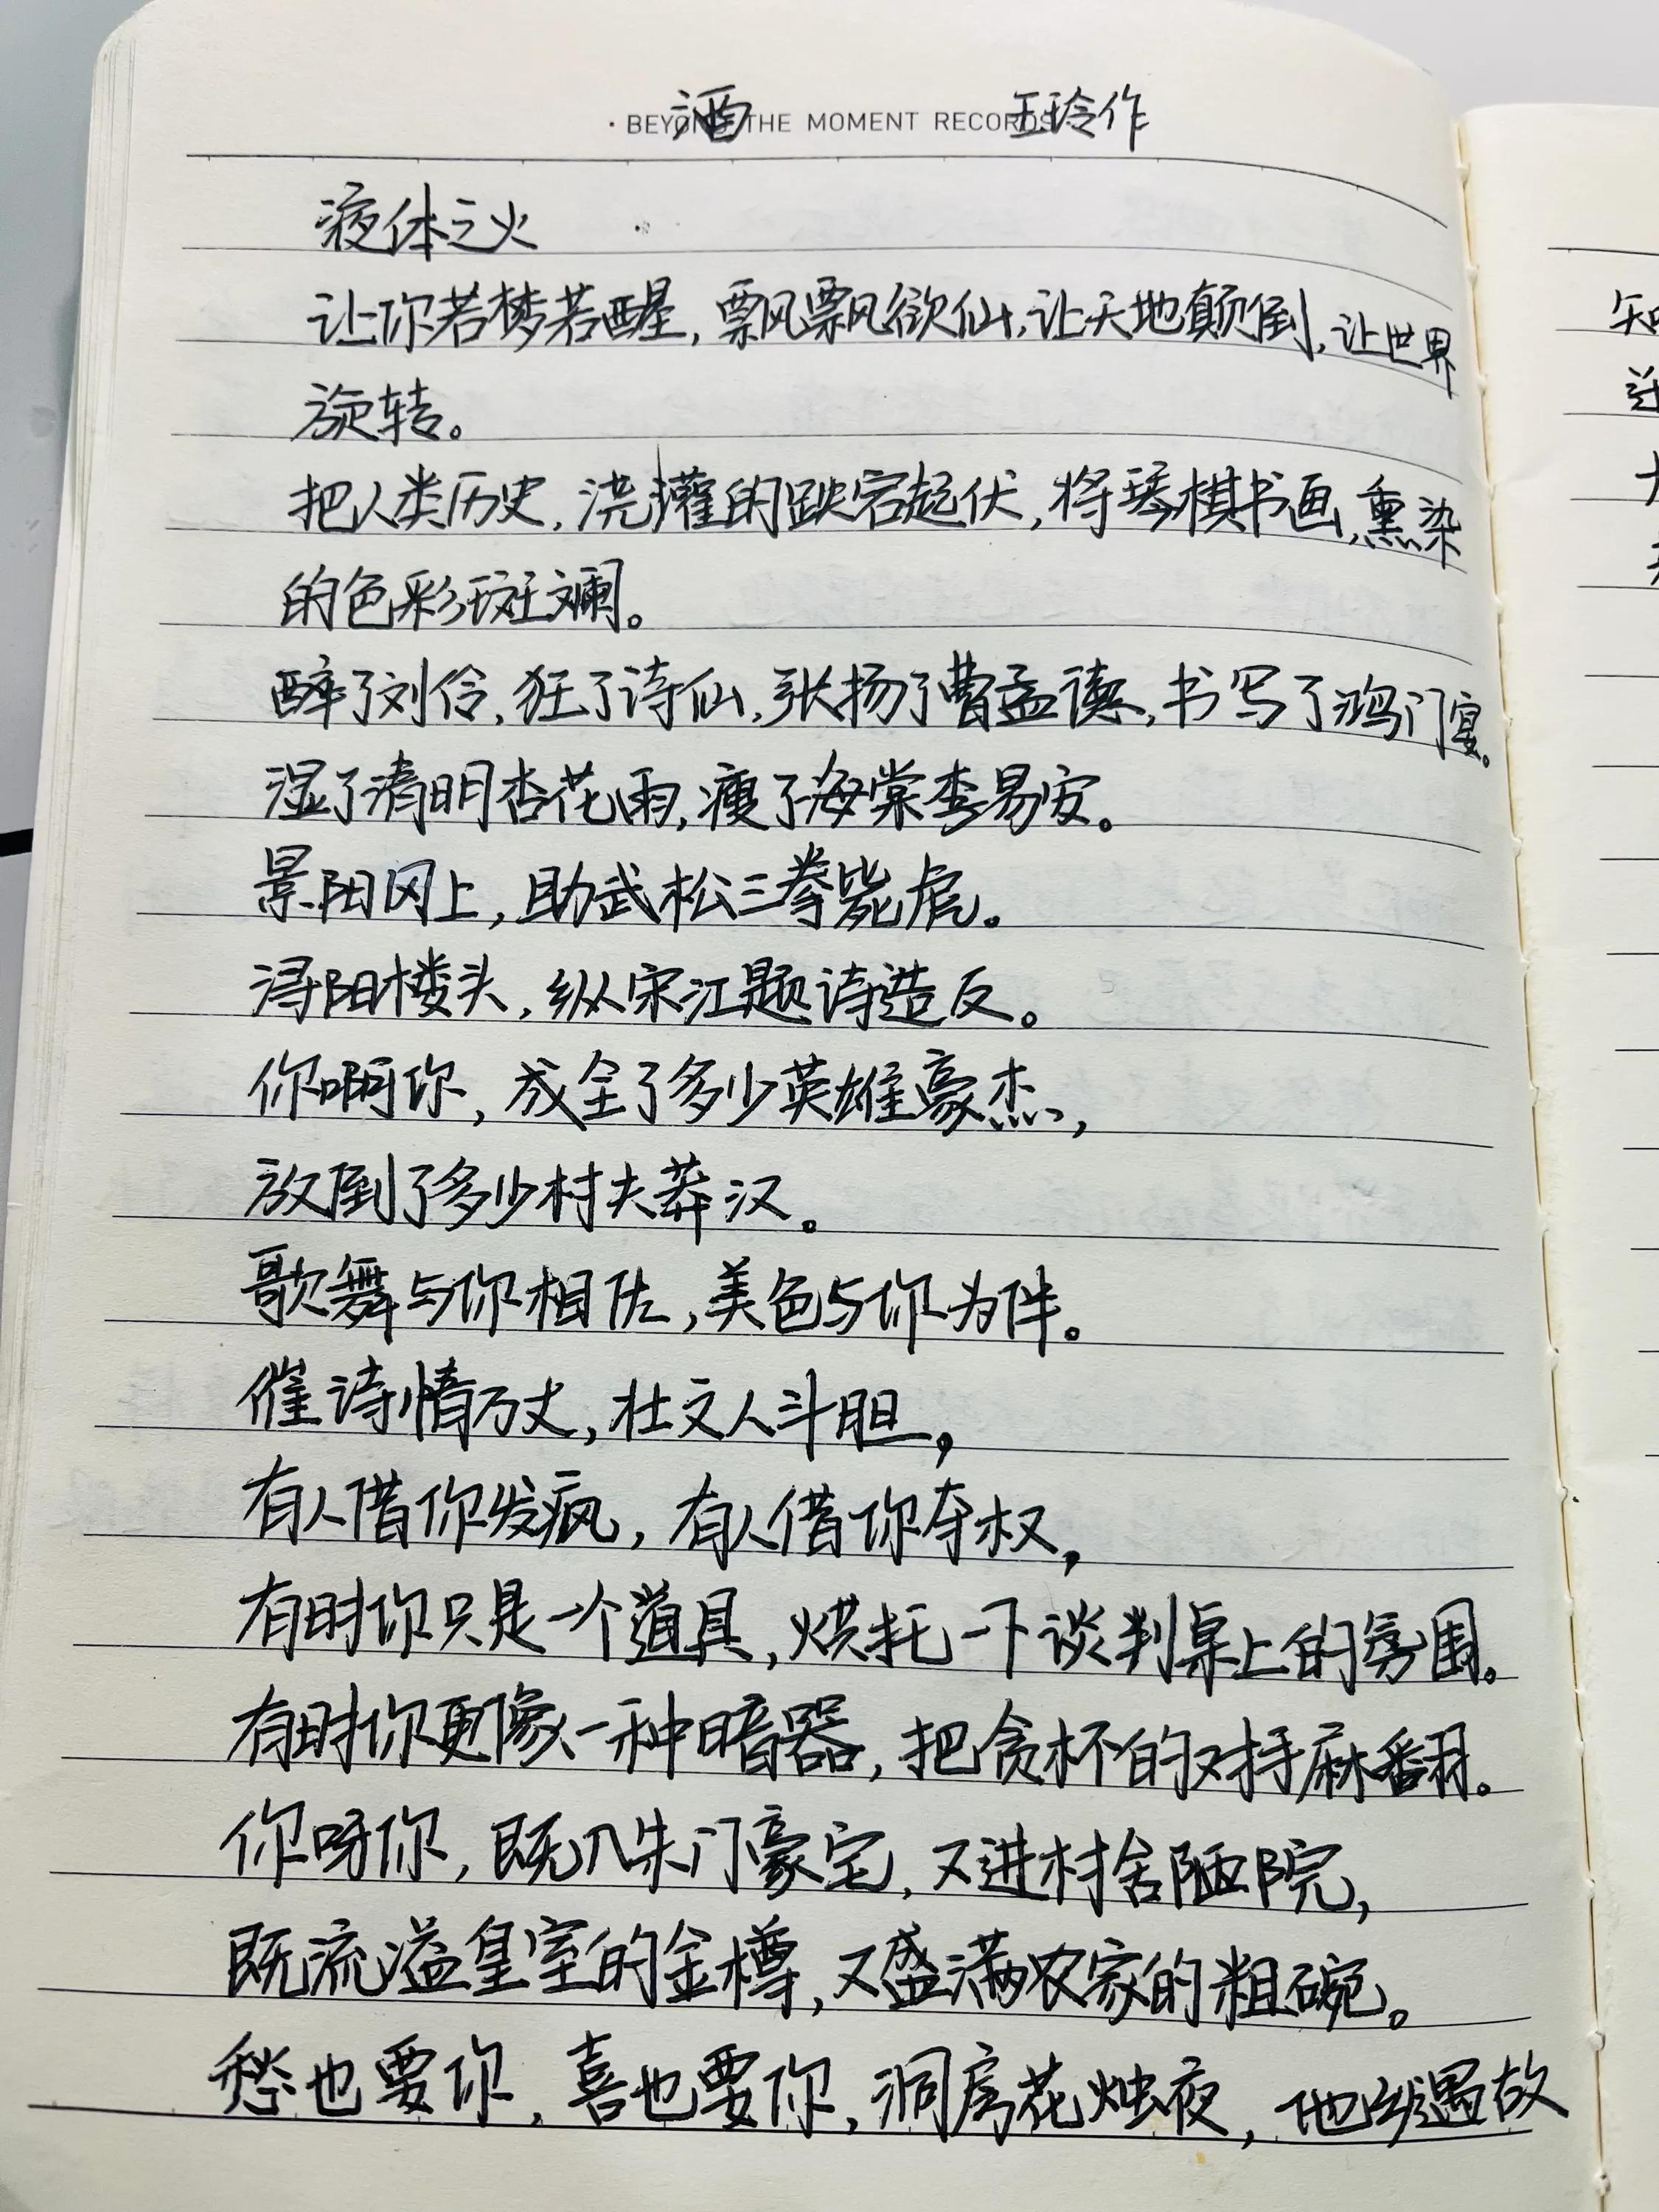 酒 王玲作
· BEYOND THE MOMENT RECORDS
液体之火
让你若梦若醒,飘飘欲仙,让天地颠倒,让世界
旋转。
把人类历史,浇灌的跌宕起伏,将琴棋书画,熏染
的色彩斑斓。
醉了刘伶,狂了诗仙,张扬了曹孟德,书写了鸿门宴。
湿了清明杏花雨,瘦了海棠李易安。
景阳冈上,助武松三拳毙虎。
浔阳楼头,纵宋江题诗造反。
你啊你,成全了多少英雄豪杰,
放倒了多少村夫莽汉。
歌舞与你相佐,美色与你为伴。
催诗情万丈,壮文人斗胆,
有人借你发疯,有人借你夺权,
有时你只是一个道具,烘托一下谈判桌上的氛围。
有时你更像一种暗器,把贪杯的对手麻翻。
你呀你,既入朱门豪宅,又进村舍陋院,
既流溢皇室的金樽,又盛满农家的粗碗。
愁也要你,喜也要你,洞房花烛夜,他乡遇故